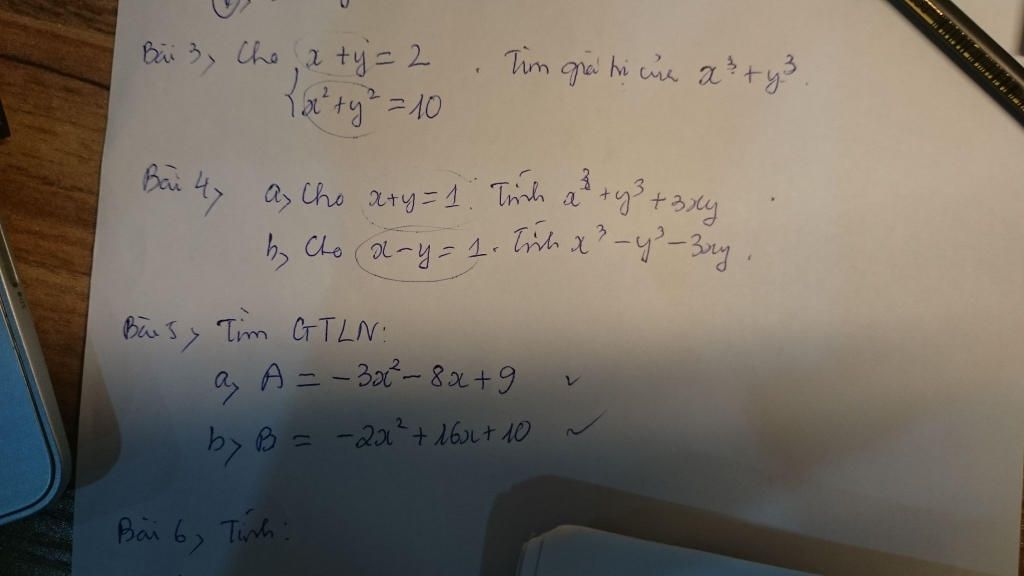 Bài 3, Cho { x + y = 2 . Tìm giá trị của x³ + y³.
x² + y² = 10
Bài 4, a, Cho x+y = 1. Tính x³ + y³ + 3xy
b, Cho x - y = 1. Tính x³ - y³ - 3xy.
Bài 5, Tìm GTLN:
a, A = -3x² - 8x + 9
b, B = -2x² + 16x + 10
Bài 6, Tính: